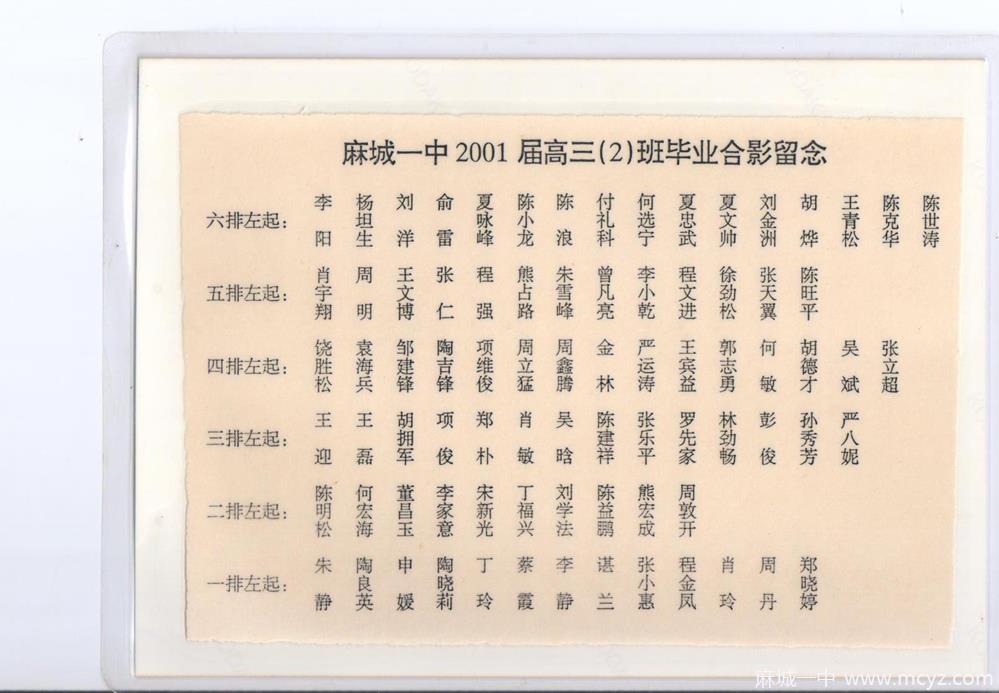 麻城一中 2001 届高三(2)班毕业合影留念
六排左起： 李阳 杨坦生 刘洋 俞雷 夏咏峰 陈小龙 陈浪 付礼科 何选宁 夏忠武 夏文帅 刘金洲 胡烨 王青松 陈克华 陈世涛
五排左起： 肖宇翔 周明 王文博 张仁 程强 熊占路 朱雪峰 曾凡亮 李小乾 程文进 徐劲松 张天翼 陈旺平
四排左起： 饶胜松 袁海兵 邹建锋 陶吉锋 项维俊 周立猛 周鑫腾 金林 严运涛 王宾益 郭志勇 何敏 胡德才 吴斌 张立超
三排左起： 王迎 王磊 胡拥军 项俊 郑朴 肖敏 吴晗 陈建祥 张乐平 罗先家 林劲畅 彭俊 孙秀芳 严八妮
二排左起： 陈明松 何宏海 董昌玉 李家意 宋新光 丁福兴 刘学法 陈益鹏 熊宏成 周敦开
一排左起： 朱静 陶良英 申媛 陶晓莉 丁玲 蔡霞 李静 谌兰 张小惠 程金凤 肖玲 周丹 郑晓婷
麻城一中 www.mcyz.com